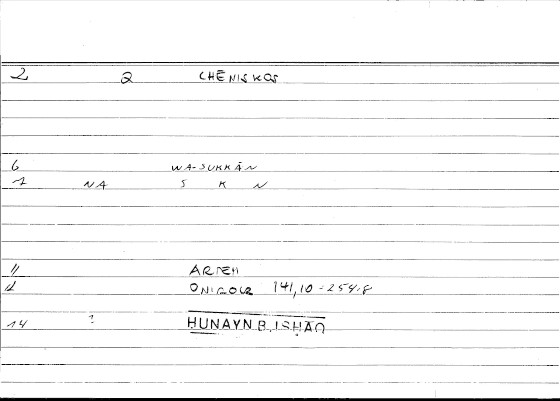 2 2 CHĒNISKOS
6 WA-SUKKĀN
7 NA S K N
11 ARTEM
12 ONIROCR 141,10 - 254.8
14 ? HUNAYN B. ISHĀQ